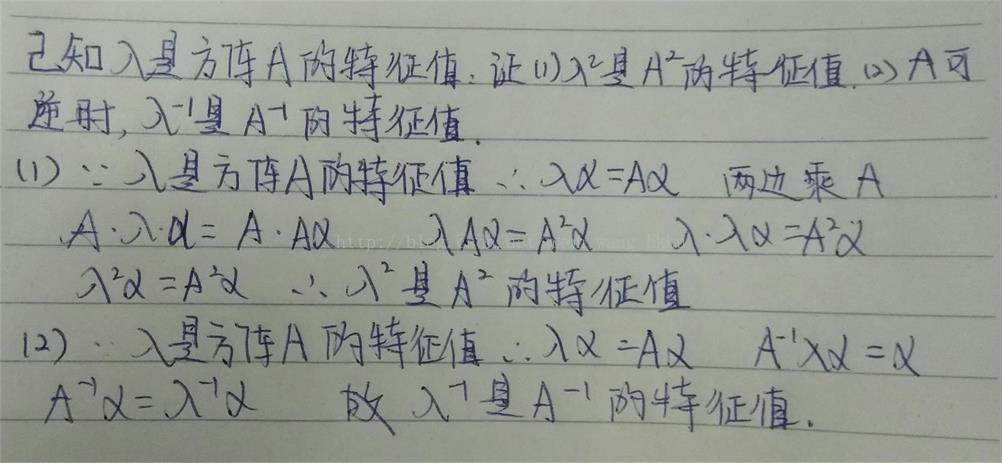 已知λ是方阵A的特征值.证(1)λ²是A²的特征值.(2)A可
逆时,λ⁻¹是A⁻¹的特征值.
(1)∵λ是方阵A的特征值 ∴λα=Aα 两边乘A
A·λ·α=A·Aα λAα=A²α λ·λα=A²α
λ²α=A²α ∴λ²是A²的特征值
(2)∵λ是方阵A的特征值∴λα=Aα A⁻¹λα=α
A⁻¹α=λ⁻¹α 故λ⁻¹是A⁻¹的特征值.